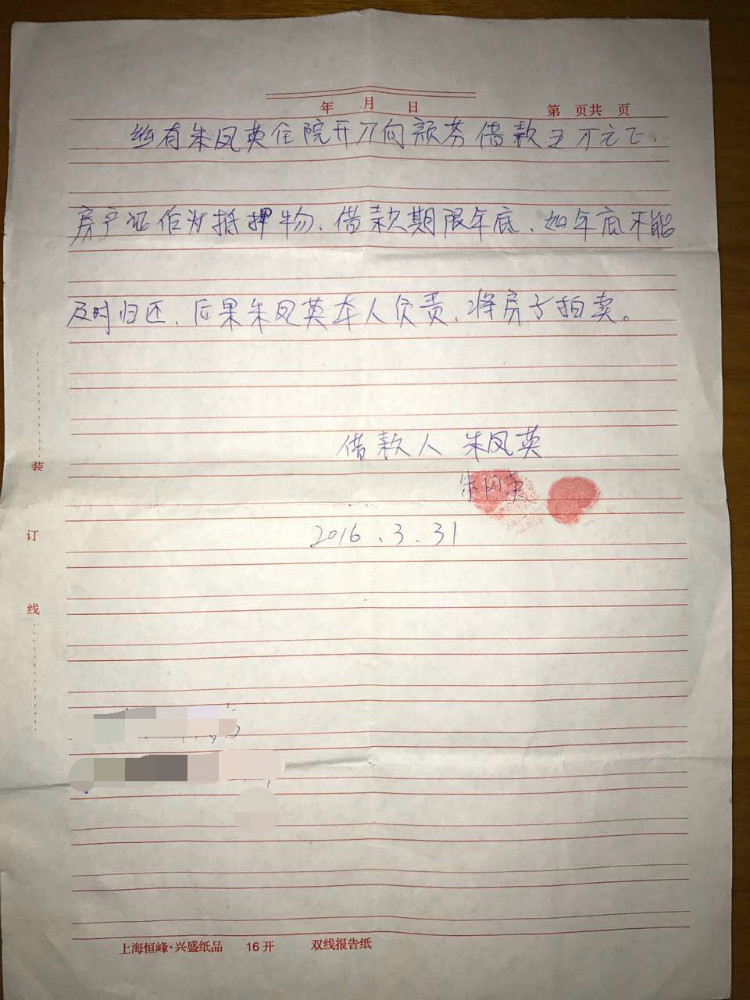 年 月 日
第 页共 页
兹有朱凤英住院开刀向颜芬借款五万元
房产证作为抵押物、借款期限年底、如年底不能
及时归还、后果朱凤英本人负责、将房子拍卖。
借款人 朱凤英
朱凤英
2016.3.31
装
订
线
上海恒峰·兴盛纸品 16开 双线报告纸